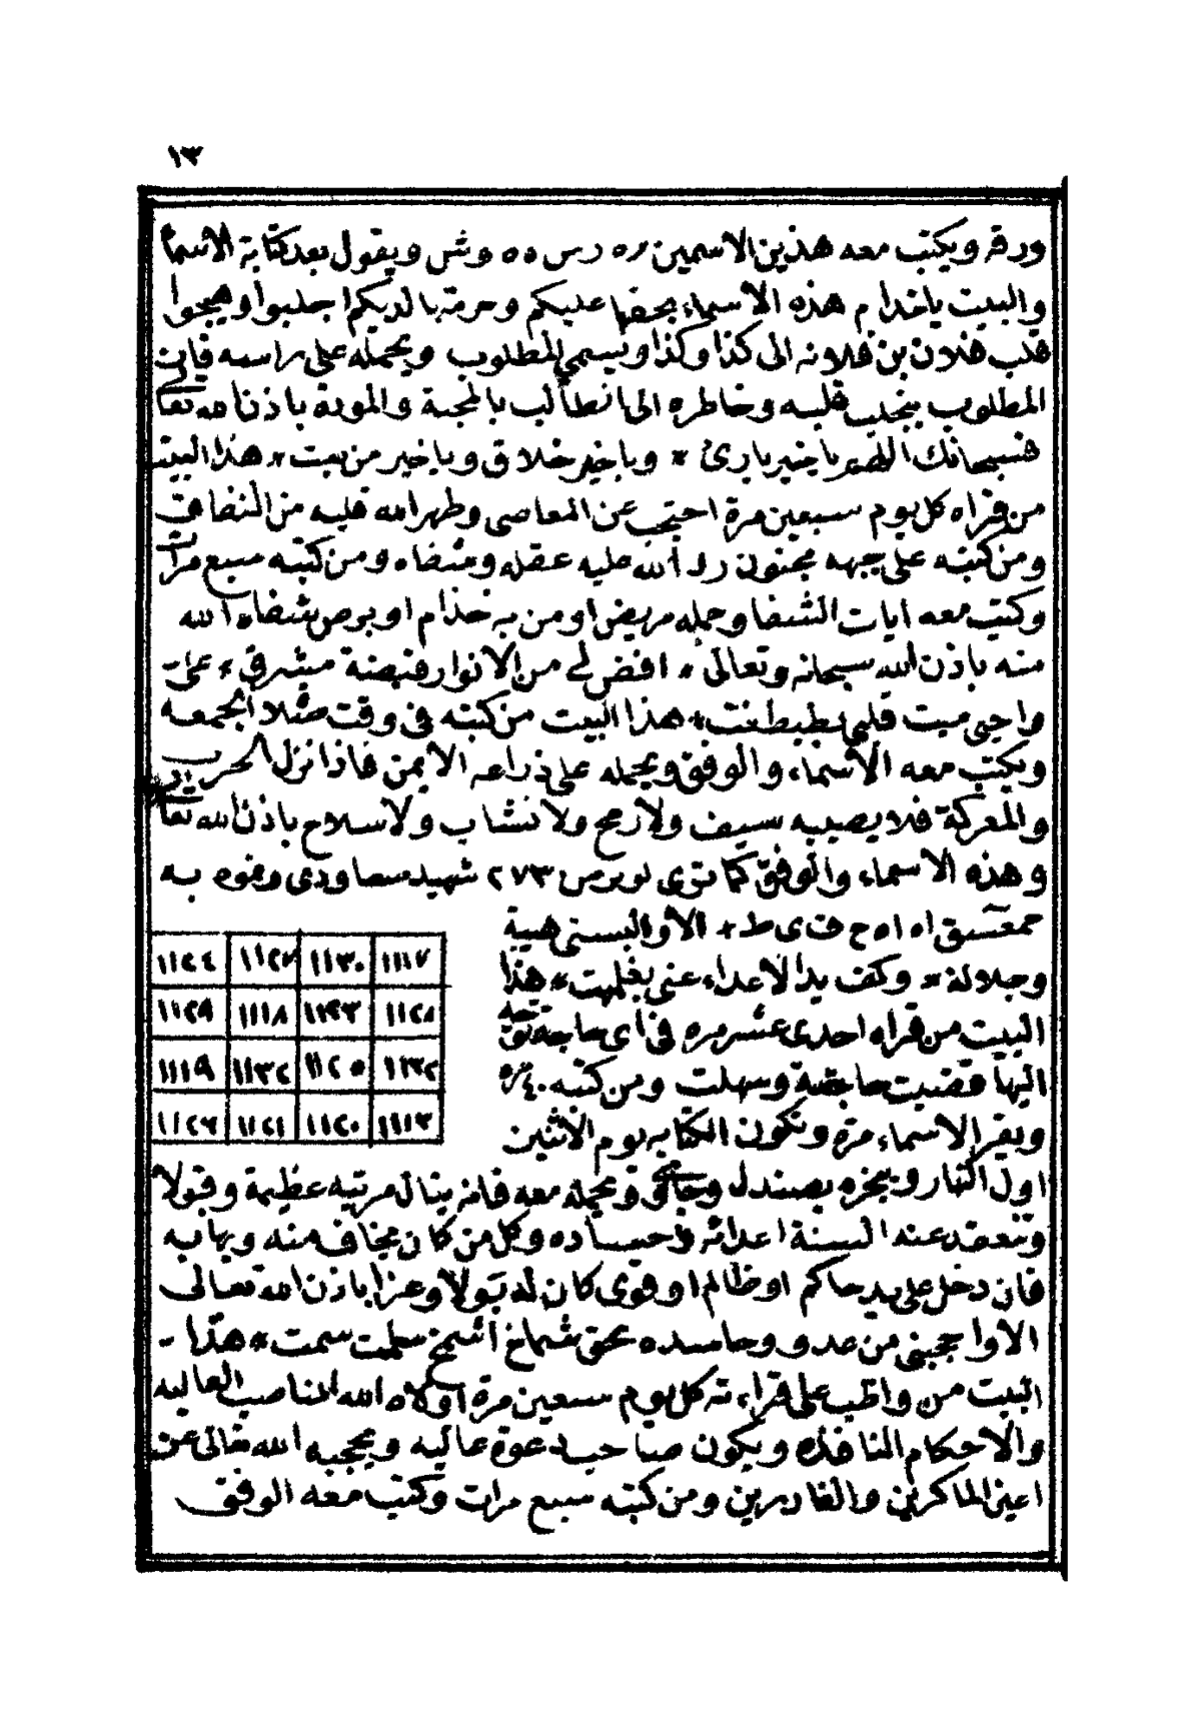 ١٣
ورقه ويكتب معه هذين الاسمين ره رس ه ه وش ويقول بعد كتابة الاسما
والبيت يا خدام هذه الاسماء بحقها عليكم وحرمة بالديكم اجلبوا وهيجوا
قلب فلان بن فلانه الى كذا وكذا ويسمي المطلوب ويحمله على راسه فان
المطلوب ينجذب قلبه وخاطره الى الطالب بالمحبة والمودة باذن الله تعالى
فسبحانك اللهم يا خير بارئ * ويا خير خلاق ويا خير من بعت * هذا البيت
من قراه كل يوم سبعين مرة احتجب عن المعاصى وطهر الله قلبه من النفاق
ومن كتبه على جبهه مجنون رد الله عليه عقله وشفاه ومن كتبه سبع مرات
وكتب معه ايات الشفا وحمله مريض او من به جذام او برص شفاه الله
منه باذن الله سبحانه وتعالى * افض لي من الانوار فبضة مشرق * على
واحي ميت قلبي بطيطغت * هذا البيت من كتبه في وقت صلاة الجمعه
ويكتب معه الاسماء والوفق ويحمله على ذراعه الايمن فاذا نزل الحرب
والمعركة فلا يصيبه سيف ولا رمح ولا نشاب ولا سلاح باذن الله تعالى
وهذه الاسماء والوفق كما ترى ٢٧٣ شهيد به
حمعسق اه اه ح ف ى ط * الا والبسنى هيبة
وجلالة * وكف يد الاعداء عني بغلمهت * هذا
البيت من قراه احدى عشر مره في اى حاجة توجه
اليها قضيت حاجته وسهلت ومن كتبه ٤٠ مره
ويقرا الاسماء مرة وتكون الكتابه يوم الاثنين
١١٢٤ ١١٢٧ ١١٣٠ ١١١٧
١١٢٩ ١١١٨ ١١٢٣ ١١٢٨
١١١٩ ١١٣٢ ١١٢٥ ١١٢٢
١١٢٦ ١١٢١ ١١٢٠ ١١١٣
اول النهار ويبخره بصندل وجاوي ويحمله معه فانه ينال مرتبه عظيمة وقبولا
وتنعقد عنه السنة اعدائه وحساده وكل من كان يخاف منه ويهابه
فان دخل على يد حاكم او ظالم او قوى كان له قبولا وعزا باذن الله تعالى
الا واحجبني من عدو وحاسده بحق شماخ أشمخ سلمت سمت * هذا
البيت من واظب على قراءته كل يوم سبعين مرة اولاه الله المناصب العاليه
والاحكام النافذه ويكون صاحب دعوة عاليه ويحجبه الله تعالى عن
اعين الماكرين والغادرين ومن كتبه سبع مرات وكتب معه الوفق